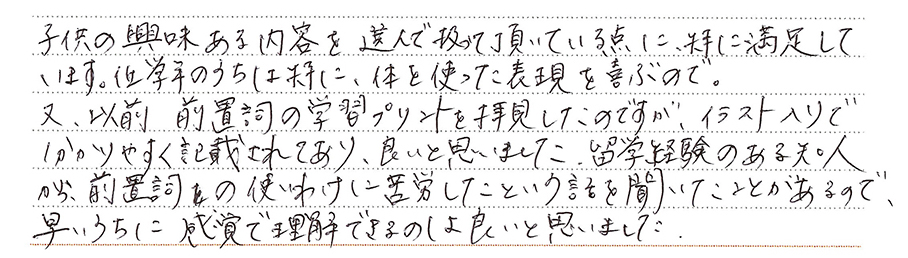 子供の興味ある内容を選んで扱って頂いている点に、特に満足して
います。低学年のうちは特に、体を使った表現を喜ぶので。
又、以前 前置詞の学習プリントを拝見したのですが、イラスト入りで
分かりやすく記載されており、良いと思いました。留学経験のある知人
から、前置詞の使いわけに苦労したという話を聞いたことがあるので、
早いうちに感覚で理解できるのは良いと思いました。